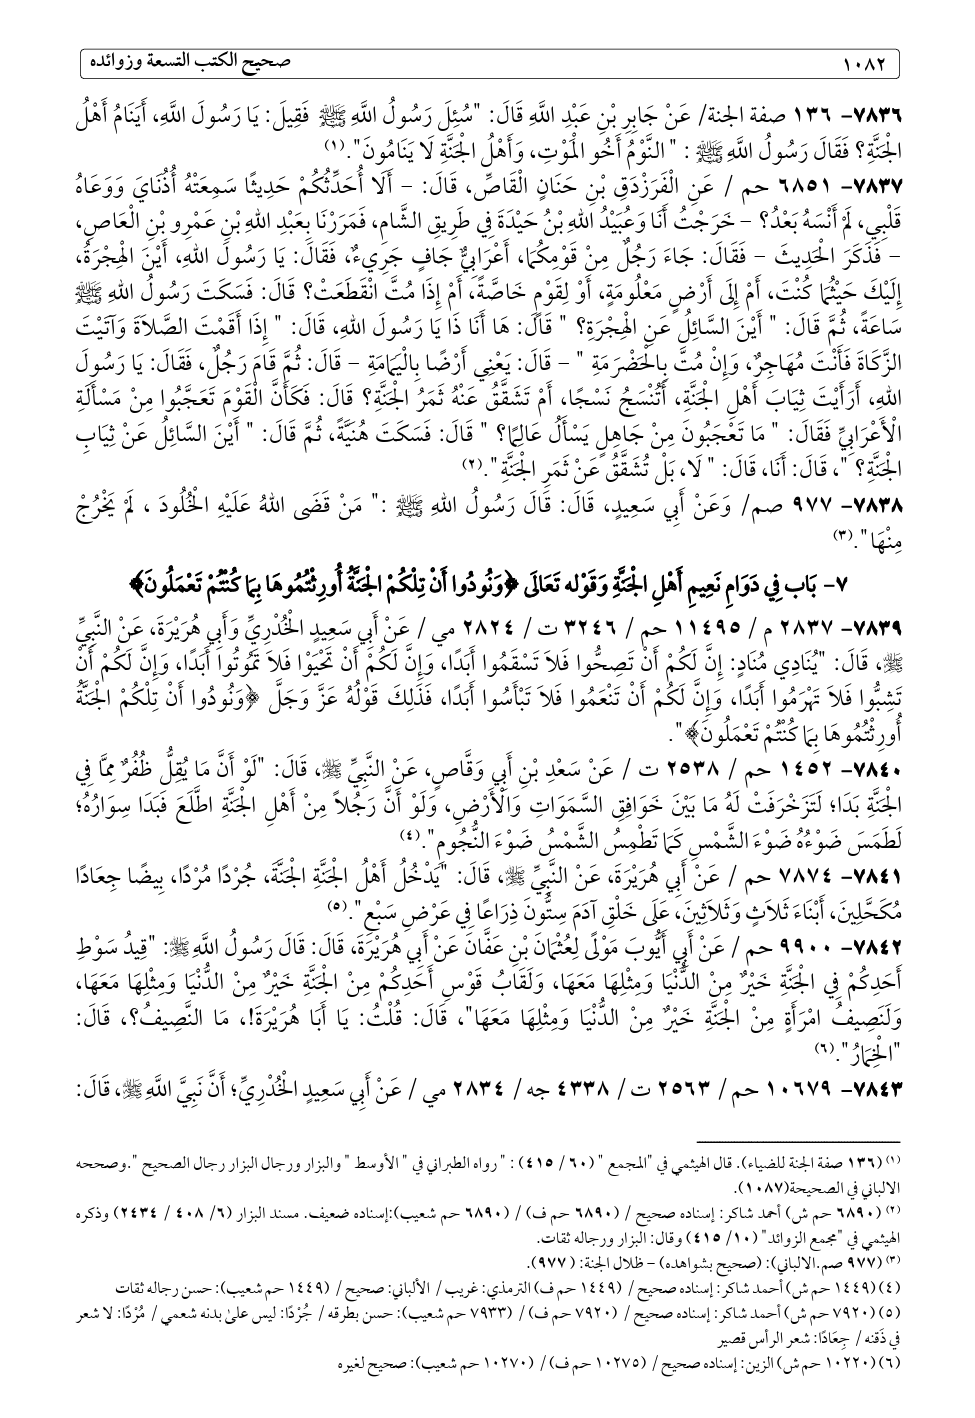 ١٠٨٢ صحيح الكتب التسعة وزوائده
٧٨٣٦- ١٣٦ صفة الجنة/ عَنْ جَابِرِ بْنِ عَبْدِ اللَّهِ قَالَ: "سُئِلَ رَسُولُ اللَّهِ ﷺ فَقِيلَ: يَا رَسُولَ اللَّهِ، أَيَنَامُ أَهْلُ
الْجَنَّةِ؟ فَقَالَ رَسُولُ اللَّهِ ﷺ : " النَّوْمُ أَخُو الْمَوْتِ، وَأَهْلُ الْجَنَّةِ لَا يَنَامُونَ".(١)
٧٨٣٧- ٦٨٥١ حم / عَنِ الْفَرَزْدَقِ بْنِ حَنَانٍ الْقَاصِّ، قَالَ: - أَلَا أُحَدِّثُكُمْ حَدِيثًا سَمِعَتْهُ أُذُنَايَ وَوَعَاهُ
قَلْبِي، لَمْ أَنْسَهُ بَعْدُ؟ - خَرَجْتُ أَنَا وَعُبَيْدُ اللهِ بْنُ حَيْدَةَ فِي طَرِيقِ الشَّامِ، فَمَرَرْنَا بِعَبْدِ اللهِ بْنِ عَمْرِو بْنِ الْعَاصِ،
- فَذَكَرَ الْحَدِيثَ - فَقَالَ: جَاءَ رَجُلٌ مِنْ قَوْمِكُمَا، أَعْرَابِيٌّ جَافٍ جَرِيءٌ، فَقَالَ: يَا رَسُولَ اللهِ، أَيْنَ الْهِجْرَةُ،
إِلَيْكَ حَيْثُمَا كُنْتَ، أَمْ إِلَى أَرْضٍ مَعْلُومَةٍ، أَوْ لِقَوْمٍ خَاصَّةً، أَمْ إِذَا مُتَّ انْقَطَعَتْ؟ قَالَ: فَسَكَتَ رَسُولُ اللهِ ﷺ
سَاعَةً، ثُمَّ قَالَ: " أَيْنَ السَّائِلُ عَنِ الْهِجْرَةِ؟ " قَالَ: هَا أَنَا ذَا يَا رَسُولَ اللهِ، قَالَ: " إِذَا أَقَمْتَ الصَّلاَةَ وَآتَيْتَ
الزَّكَاةَ فَأَنْتَ مُهَاجِرٌ، وَإِنْ مُتَّ بِالْحَضْرَمَةِ " - قَالَ: يَعْنِي أَرْضًا بِالْيَمَامَةِ - قَالَ: ثُمَّ قَامَ رَجُلٌ، فَقَالَ: يَا رَسُولَ
اللهِ، أَرَأَيْتَ ثِيَابَ أَهْلِ الْجَنَّةِ، أَتُنْسَجُ نَسْجًا، أَمْ تَشَقَّقُ عَنْهُ ثَمَرُ الْجَنَّةِ؟ قَالَ: فَكَأَنَّ الْقَوْمَ تَعَجَّبُوا مِنْ مَسْأَلَةِ
الْأَعْرَابِيِّ فَقَالَ: " مَا تَعْجَبُونَ مِنْ جَاهِلٍ يَسْأَلُ عَالِمًا؟ " قَالَ: فَسَكَتَ هُنَيَّةً، ثُمَّ قَالَ: " أَيْنَ السَّائِلُ عَنْ ثِيَابِ
الْجَنَّةِ؟ "، قَالَ: أَنَا، قَالَ: " لَا، بَلْ تُشَقَّقُ عَنْ ثَمَرِ الْجَنَّةِ".(٢)
٧٨٣٨- ٩٧٧ صم/ وَعَنْ أَبِي سَعِيدٍ، قَالَ: قَالَ رَسُولُ اللهِ ﷺ :" مَنْ قَضَى اللهُ عَلَيْهِ الْخُلُودَ ، لَمْ يَخْرُجْ
مِنْهَا".(٣)
٧- بَاب فِي دَوَامِ نَعِيمِ أَهْلِ الْجَنَّةِ وَقَوْله تَعَالَى ﴿وَنُودُوا أَنْ تِلْكُمْ الْجَنَّةُ أُورِثْتُمُوهَا بِمَا كُنْتُمْ تَعْمَلُونَ﴾
٧٨٣٩- ٢٨٣٧ م/ ١١٤٩٥ حم / ٣٢٤٦ ت/ ٢٨٢٤ مي/ عَنْ أَبِي سَعِيدٍ الْخُدْرِيِّ وَأَبِي هُرَيْرَةَ، عَنْ النَّبِيِّ
ﷺ، قَالَ: "يُنَادِي مُنَادٍ: إِنَّ لَكُمْ أَنْ تَصِحُّوا فَلاَ تَسْقَمُوا أَبَدًا، وَإِنَّ لَكُمْ أَنْ تَحْيَوْا فَلاَ تَمُوتُوا أَبَدًا، وَإِنَّ لَكُمْ أَنْ
تَشِبُّوا فَلاَ تَهْرَمُوا أَبَدًا، وَإِنَّ لَكُمْ أَنْ تَنْعَمُوا فَلاَ تَبْأَسُوا أَبَدًا، فَذَلِكَ قَوْلُهُ عَزَّ وَجَلَّ ﴿وَنُودُوا أَنْ تِلْكُمْ الْجَنَّةُ
أُورِثْتُمُوهَا بِمَا كُنْتُمْ تَعْمَلُونَ﴾".
٧٨٤٠- ١٤٥٢ حم / ٢٥٣٨ ت / عَنْ سَعْدِ بْنِ أَبِي وَقَّاصٍ، عَنْ النَّبِيِّ ﷺ، قَالَ: "لَوْ أَنَّ مَا يُقِلُّ ظُفُرٌ مِمَّا فِي
الْجَنَّةِ بَدَا؛ لَتَزَخْرَفَتْ لَهُ مَا بَيْنَ خَوَافِقِ السَّمَوَاتِ وَالْأَرْضِ، وَلَوْ أَنَّ رَجُلاً مِنْ أَهْلِ الْجَنَّةِ اطَّلَعَ فَبَدَا سِوَارُهُ؛
لَطَمَسَ ضَوْءُهُ ضَوْءَ الشَّمْسِ كَمَا تَطْمِسُ الشَّمْسُ ضَوْءَ النُّجُومِ".(٤)
٧٨٤١- ٧٨٧٤ حم / عَنْ أَبِي هُرَيْرَةَ، عَنْ النَّبِيِّ ﷺ، قَالَ: "يَدْخُلُ أَهْلُ الْجَنَّةِ الْجَنَّةَ، جُرْدًا مُرْدًا، بِيضًا جِعَادًا
مُكَحَّلِينَ، أَبْنَاءَ ثَلَاثٍ وَثَلَاثِينَ، عَلَى خَلْقِ آدَمَ سِتُّونَ ذِرَاعًا فِي عَرْضِ سَبْعٍ".(٥)
٧٨٤٢- ٩٩٠٠ حم / عَنْ أَبِي أَيُّوبَ مَوْلًى لِعُثْمَانَ بْنِ عَفَّانَ عَنْ أَبِي هُرَيْرَةَ، قَالَ: قَالَ رَسُولُ اللهِ ﷺ: "قِيدُ سَوْطِ
أَحَدِكُمْ فِي الْجَنَّةِ خَيْرٌ مِنْ الدُّنْيَا وَمِثْلِهَا مَعَهَا، وَلَقَابُ قَوْسِ أَحَدِكُمْ مِنْ الْجَنَّةِ خَيْرٌ مِنْ الدُّنْيَا وَمِثْلِهَا مَعَهَا،
وَلَنَصِيفُ امْرَأَةٍ مِنْ الْجَنَّةِ خَيْرٌ مِنْ الدُّنْيَا وَمِثْلِهَا مَعَهَا"، قَالَ: قُلْتُ: يَا أَبَا هُرَيْرَةَ!، مَا النَّصِيفُ؟، قَالَ:
"الْخِمَارُ".(٦)
٧٨٤٣- ١٠٦٧٩ حم/ ٢٥٦٣ ت/ ٤٣٣٨ جه/ ٢٨٣٤ مي/ عَنْ أَبِي سَعِيدٍ الْخُدْرِيِّ؛ أَنَّ نَبِيَّ اللَّهِ ﷺ، قَالَ:
(١) (١٣٦ صفة الجنة للضياء). قال الهيثمي في "المجمع "(٦٠/ ٤١٥) : " رواه الطبراني في " الأوسط " والبزار ورجال البزار رجال الصحيح ".وصححه
الالباني في الصحيحة(١٠٨٧).
(٢) (٦٨٩٠ حم ش) أحمد شاكر: إسناده صحيح / (٦٨٩٠ حم ف) / (٦٨٩٠ حم شعيب):إسناده ضعيف. مسند البزار (٦/ ٤٠٨ / ٢٤٣٤) وذكره
الهيثمي في "مجمع الزوائد" (١٠/ ٤١٥) وقال: البزار ورجاله ثقات.
(٣) (٩٧٧ صم.الالباني): (صحيح بشواهده) - ظلال الجنة: ( ٩٧٧).
(٤) (١٤٤٩ حم ش) أحمد شاكر: إسناده صحيح / (١٤٤٩ حم ف) الترمذي: غريب / الألباني: صحيح / (١٤٤٩ حم شعيب): حسن رجاله ثقات
(٥) (٧٩٢٠ حم ش) أحمد شاكر: إسناده صحيح / (٧٩٢٠ حم ف) / (٧٩٣٣ حم شعيب): حسن بطرقه / جُرْدًا: ليس على بدنه شعمي / مُرْدًا: لا شعر
في ذَقنه / جِعَادًا: شعر الرأس قصير
(٦) (١٠٢٢٠ حم ش) الزين: إسناده صحيح / (١٠٢٧٥ حم ف)/ (١٠٢٧٠ حم شعيب): صحيح لغيره